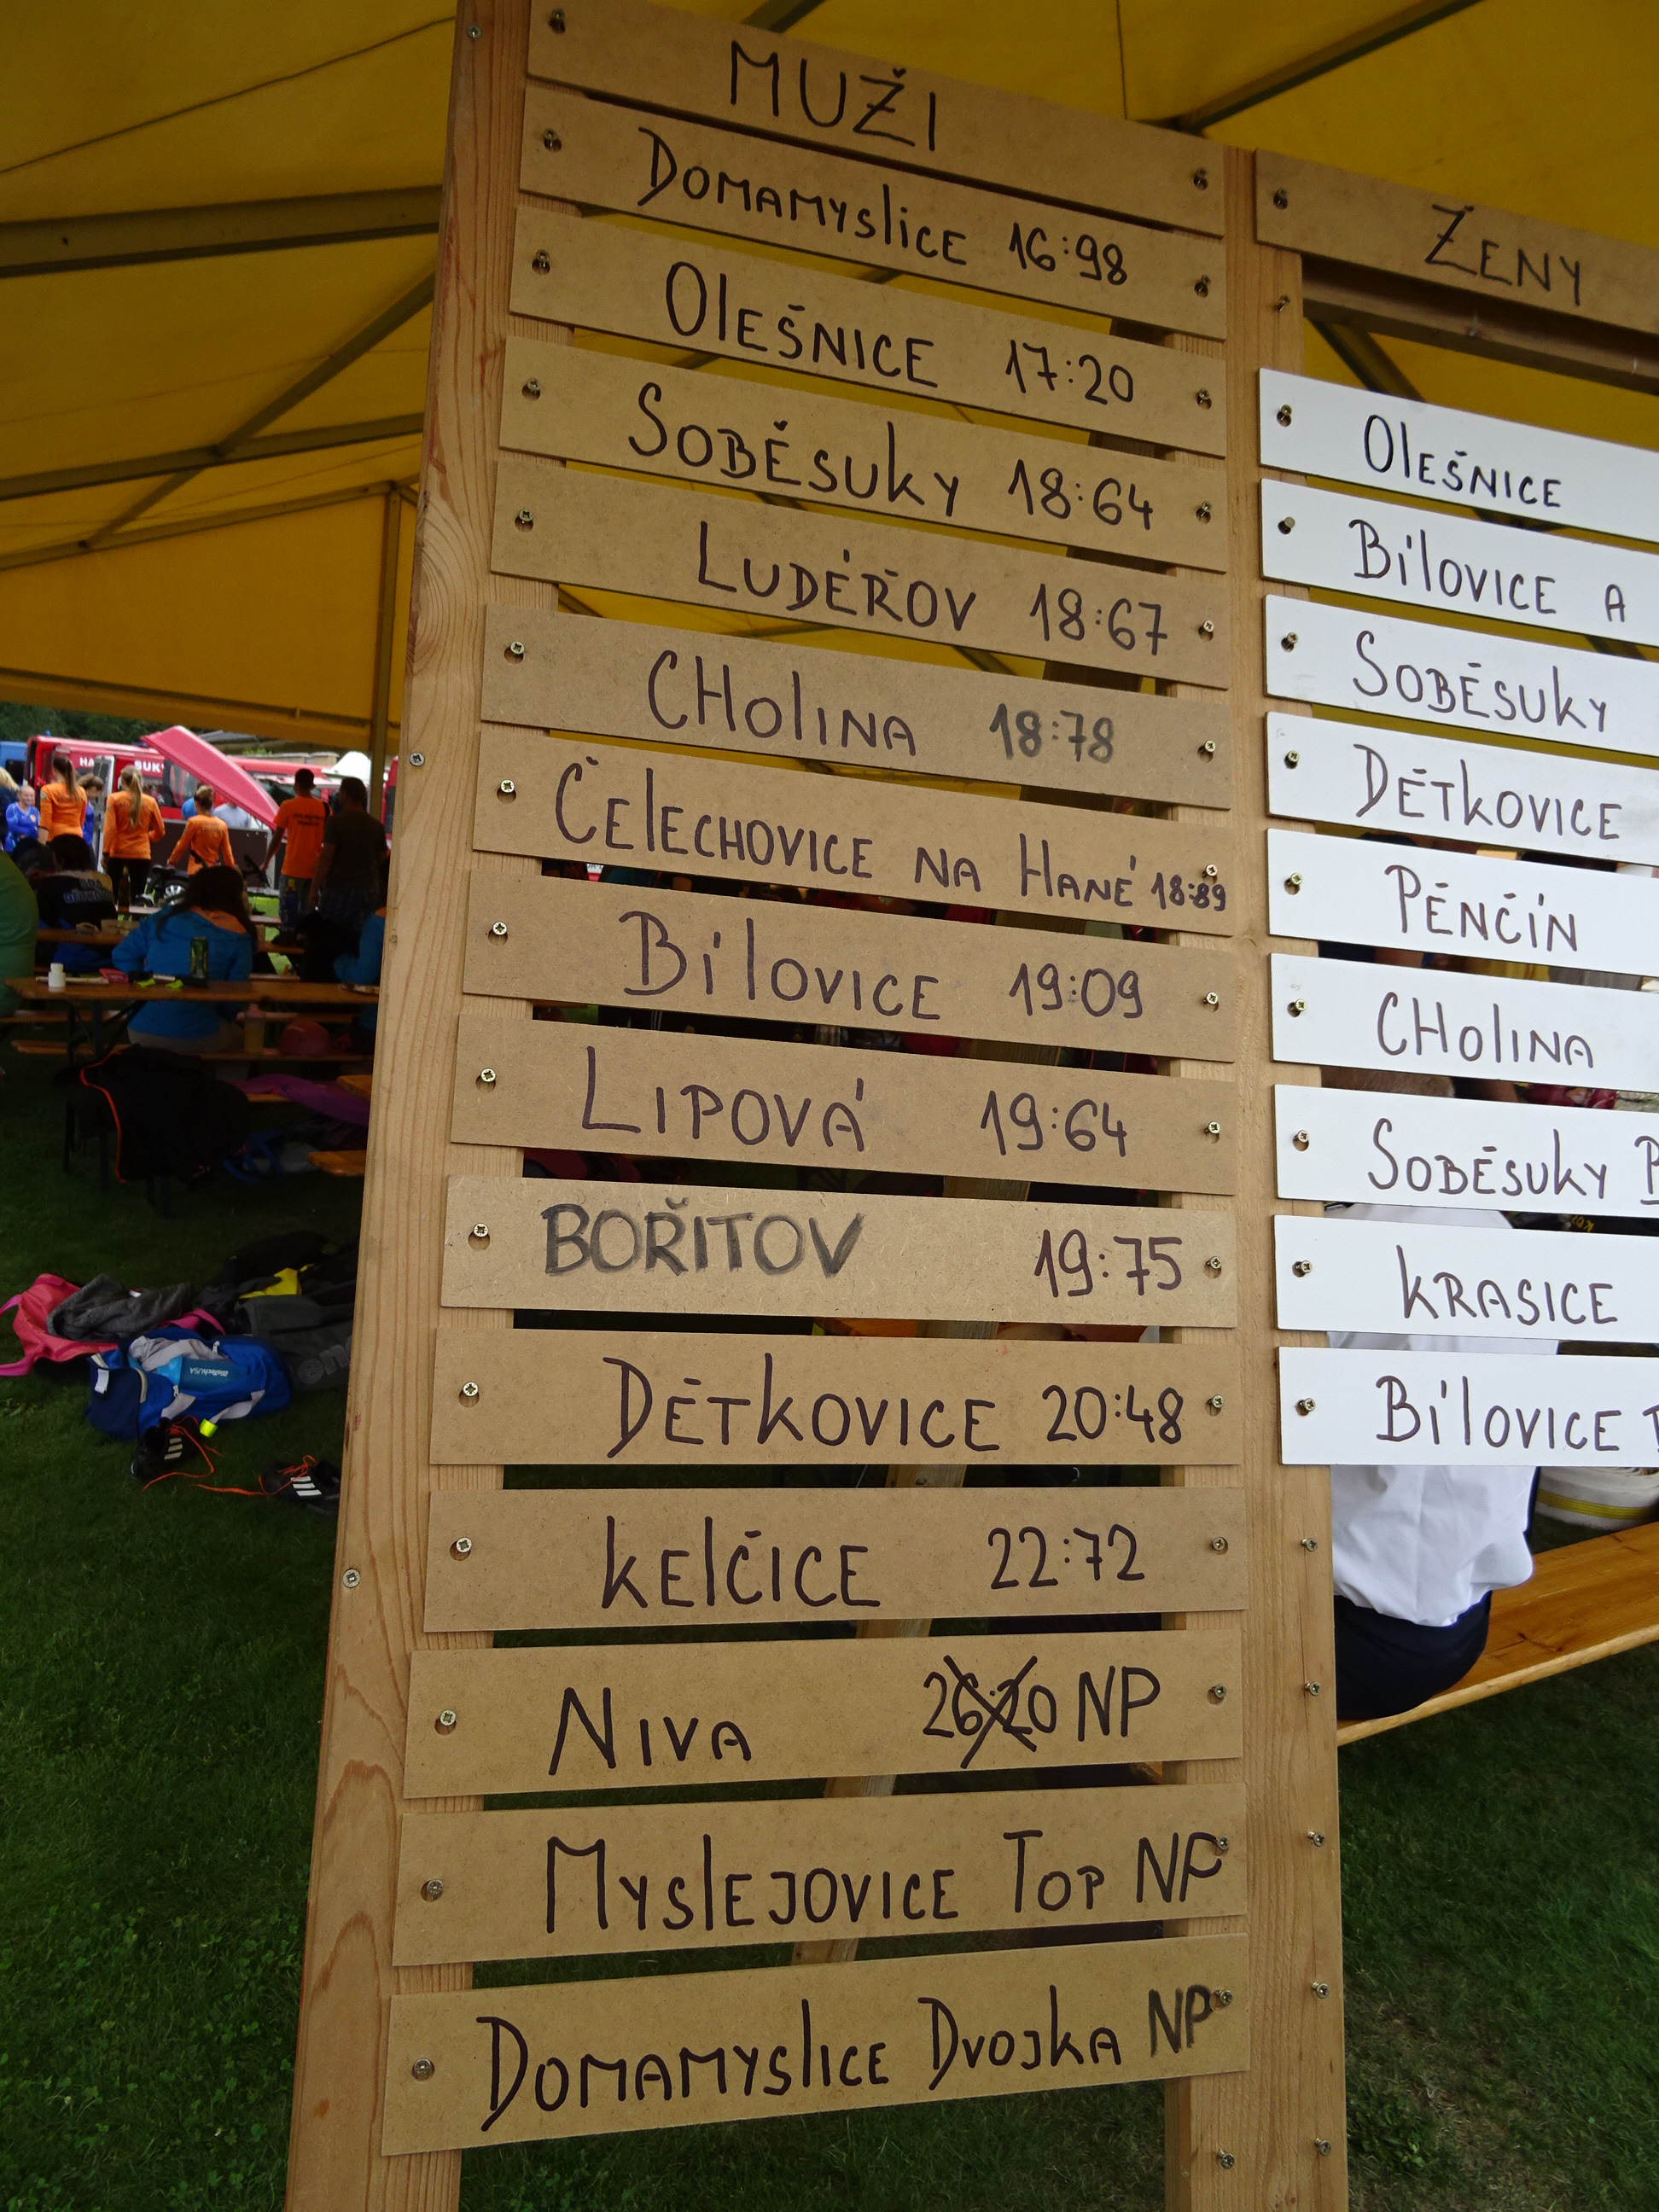 MUŽI
DOMAMYSlICE 16:98
OlEŠNICE 17:20
SOBĚSUkY 18:64
LUDÉŘOV 18:67
CHOlINA 18:78
ČElECHOVICE NA HANÉ 18:89
BílOVICE 19:09
LIPOVÁ 19:64
BOŘITOV 19:75
DĚTkOVICE 20:48
kElČICE 22:72
NIVA 26:20 NP
MYSlEJOVICE TOP NP
DOMAMYSlICE DVOJkA NP
ŽENY
OlEŠNICE
BílOVICE A
SOBĚSUkY
DĚTkOVICE
PĚNČÍN
CHOlINA
SOBĚSUkY B
kRASICE
BílOVICE